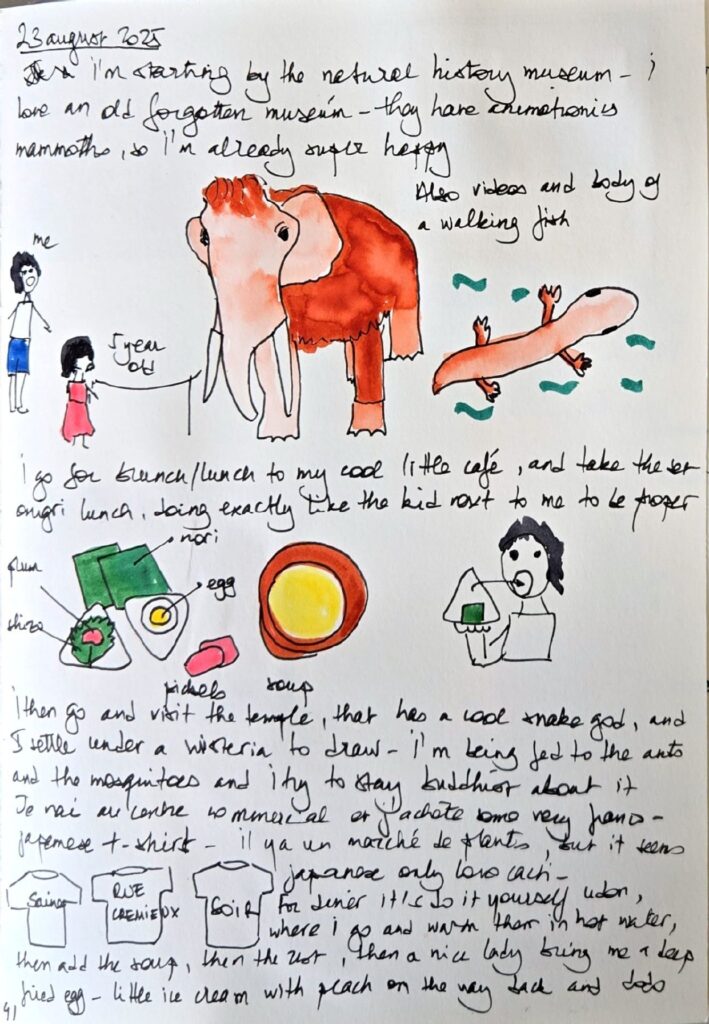 23 august 2025
i'm starting by the natural history museum - i
love an old forgotten museum - they have animotronics
mammoths, so i'm already super happy
Also videos and body of
a walking fish
me
5 year
old
i go for brunch/lunch to my cool little café, and take the set
onigri lunch, doing exactly like the kid next to me to be proper
nori
plum
egg
shizo
pickels
soup
i then go and visit the temple, that has a cool snake god, and
I settle under a wisteria to draw - i'm being fed to the ants
and the mosquitoes and i try to stay buddhist about it
Je vais au centre commercial et j'achete some very franco-
japanese t-shirt - il y a un marché de plants, but it seems
japanese only love cacti -
RUE
CREMIEUX
SOIR
For diner it's do it yourself udon,
where i go and warm them in hot water,
then add the soup, then the rest, then a nice lady bring me a deep
fried egg - little ice cream with peach on the way back and dodo
41